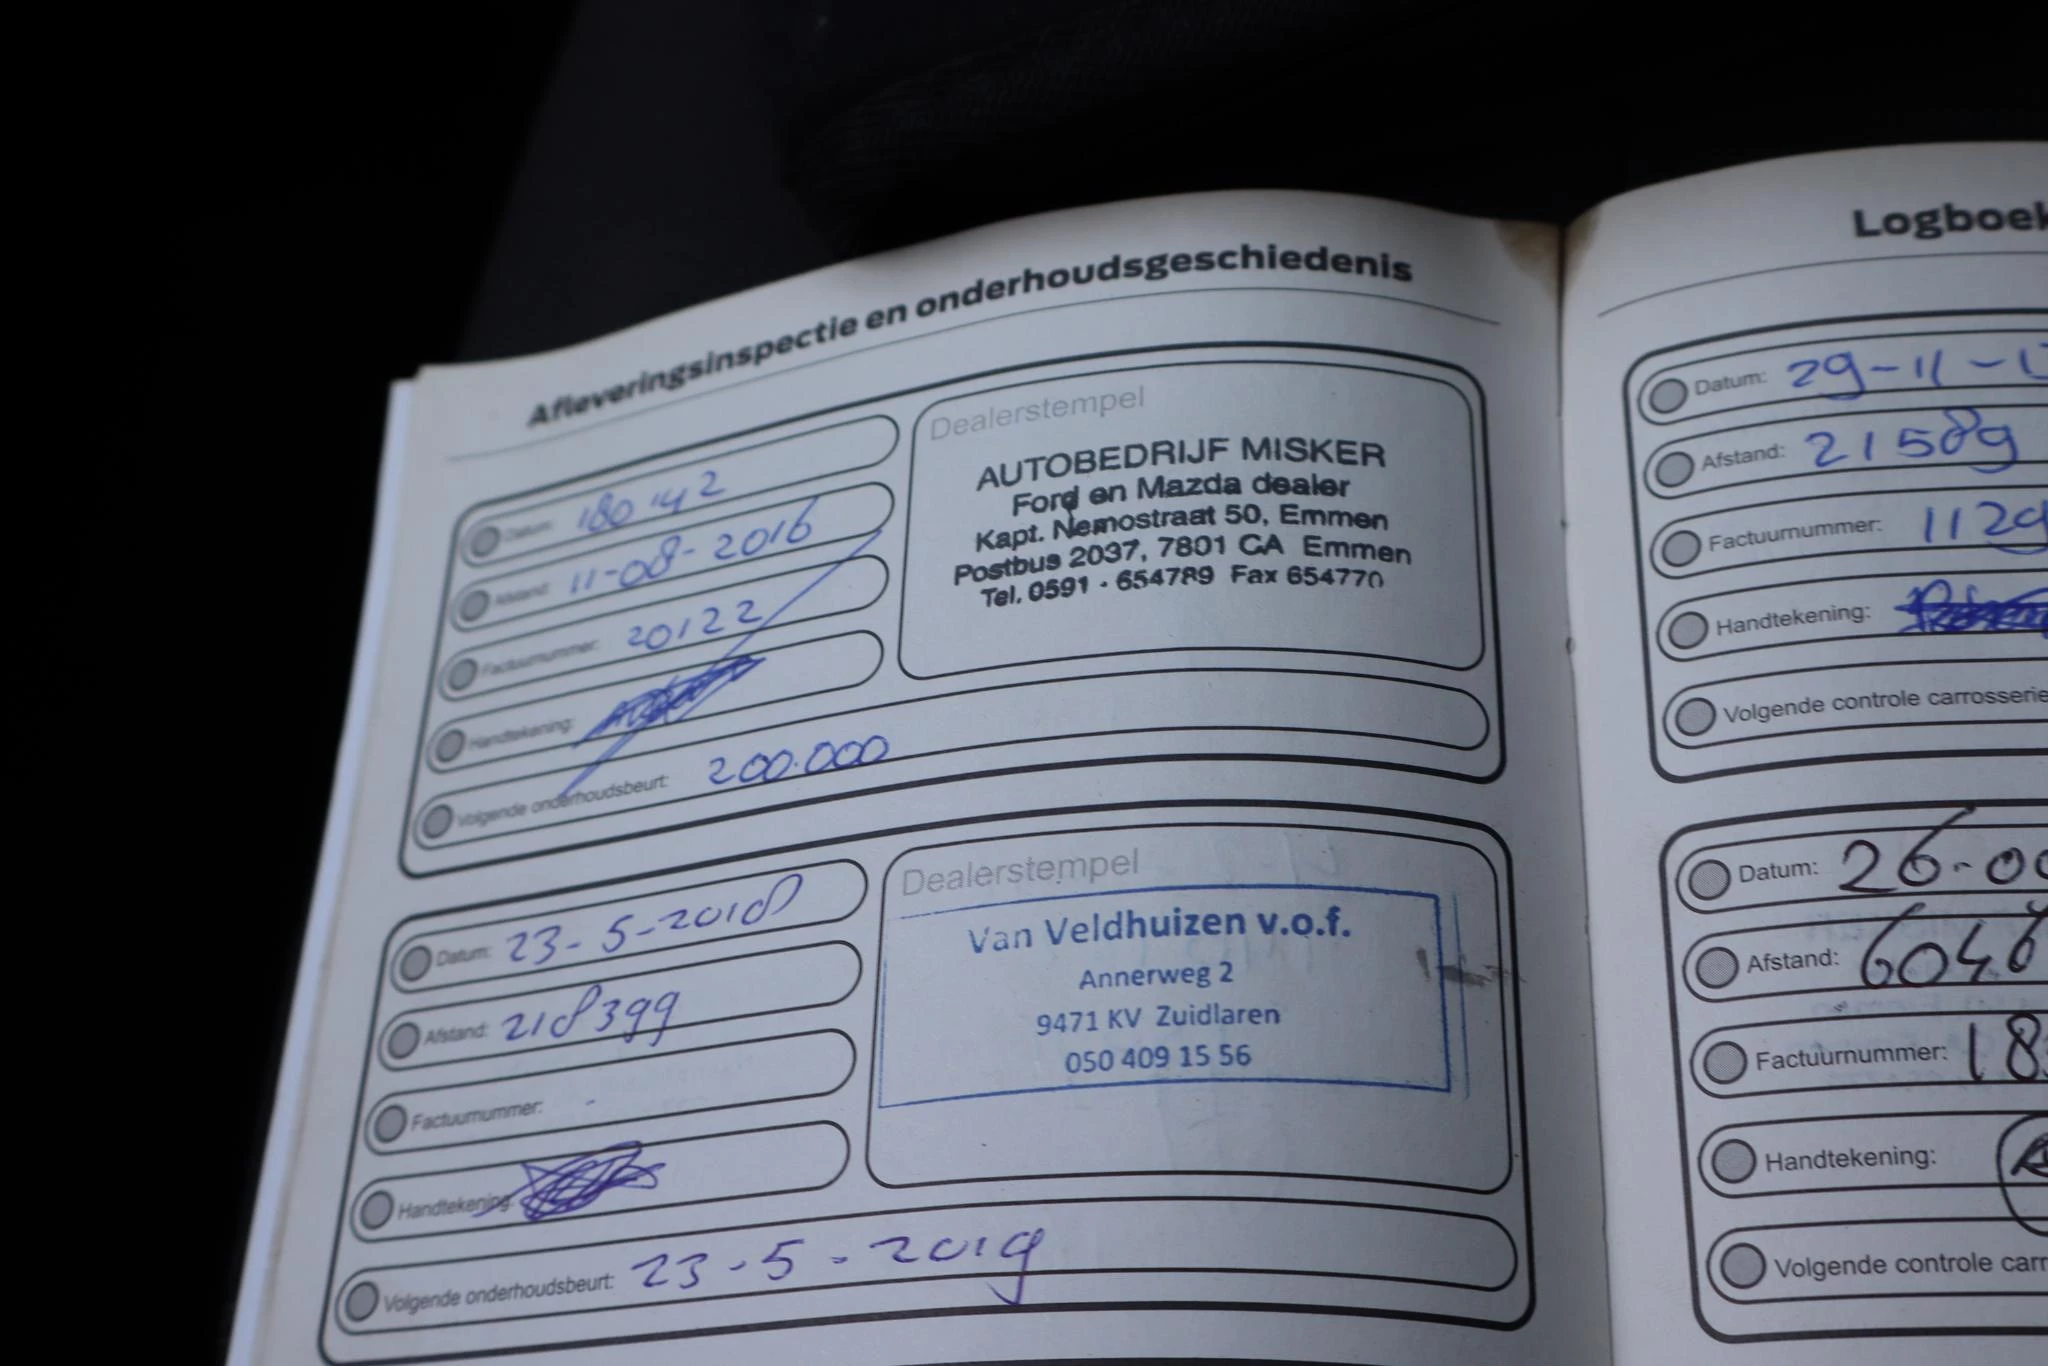 Afleveringsinspectie en onderhoudsgeschiedenis
Datum: 180142
Afstand: 11-08-2016
Factuurnummer: 20122
Handtekening:
Volgende onderhoudsbeurt: 200.000
Dealerstempel
AUTOBEDRIJF MISKER
Ford en Mazda dealer
Kapt. Nemostraat 50, Emmen
Postbus 2037, 7801 CA Emmen
Tel. 0591 - 654789 Fax 654770
Datum: 23-5-2018
Afstand: 218399
Factuurnummer: -
Handtekening:
Volgende onderhoudsbeurt: 23-5-2019
Dealerstempel
Van Veldhuizen v.o.f.
Annerweg 2
9471 KV Zuidlaren
050 409 15 56
Logboek
Datum: 29-11-1
Afstand: 21589
Factuurnummer: 1129
Handtekening:
Volgende controle carrosserie
Datum: 26-00
Afstand: 6046
Factuurnummer: 183
Handtekening:
Volgende controle carr